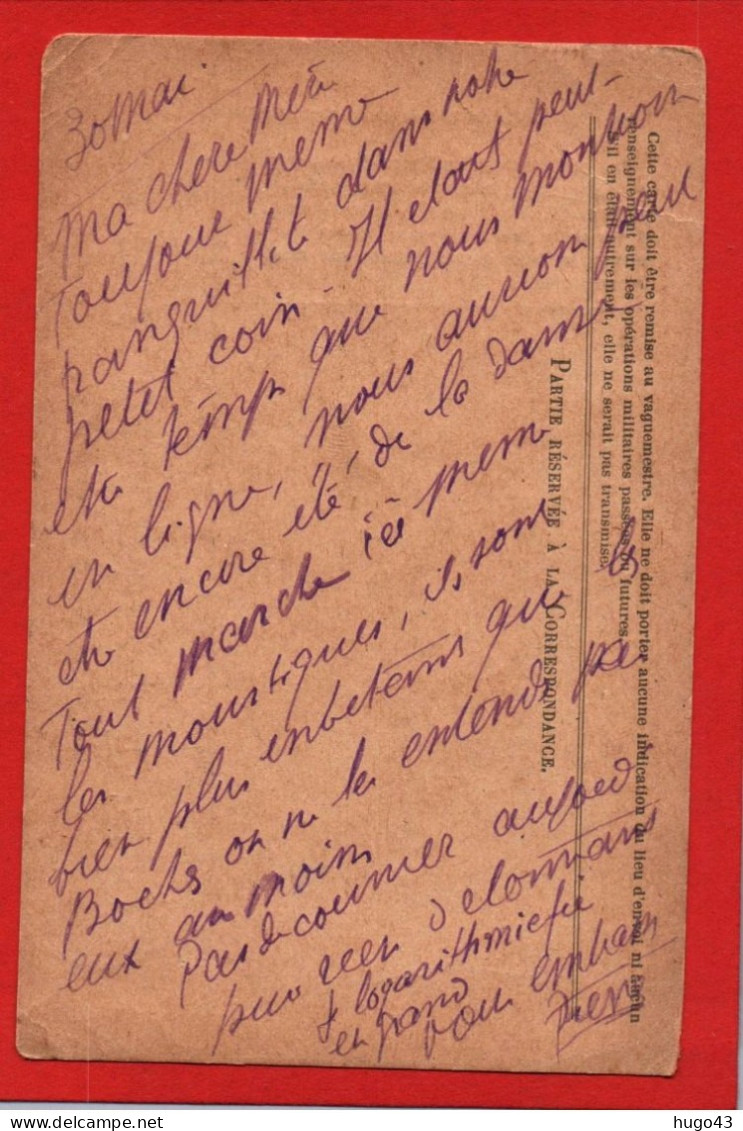 30 Mai
Ma chere Mère
Toujours meme
tranquillité dans notre
petit coin - Il etait peut-
etre temps que nous montion
en ligne, nous aurions peu
etre encore été de la danse
Tout marche ici meme
les moustiques, ils sont
bien plus embetants que les
Boches on ne les entends pas
eux au moins
Pas de courrier aujourd
pour rien d'etonnant
logarithmiefié
en grand
vous embrasse
Cette carte doit être remise au vaguemestre. Elle ne doit porter aucune indication du lieu d'envoi ni aucun
renseignement sur les opérations militaires passées ou futures.
S'il en était autrement, elle ne serait pas transmise.
PARTIE RÉSERVÉE À LA CORRESPONDANCE.
hugo43